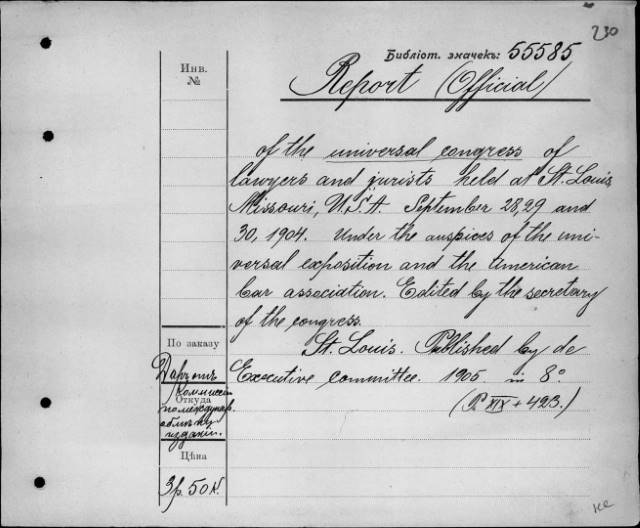 230
Библіот. значекъ: 55585
Инв.
№
Report (Official)
of the universal congress of
lawyers and jurists held at St. Louis
Missouri, U.S.A. September 28,29 and
30, 1904. Under the auspices of the uni-
versal exposition and the American
bar association. Edited by the secretary
of the congress.
St. Louis. Published by de
Executive committee. 1905 in 8°
(P. XIX + 423.)
По заказу
Даръ отъ
Коммиссіи
Откуда
по междунар.
обмѣну
изданій.
Цѣна
3р. 50к.